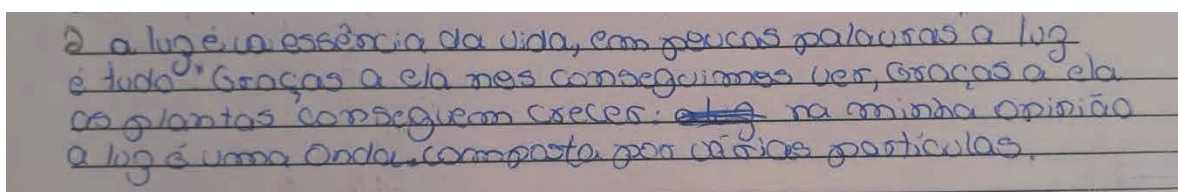 2 a luz é a essência da vida, em poucas palavras a luz
é tudo. Graças a ela nos conseguimos ver, Graças a ela
as plantas conseguem crecer: na minha opinião
a luz é uma onda composta por várias partículas.